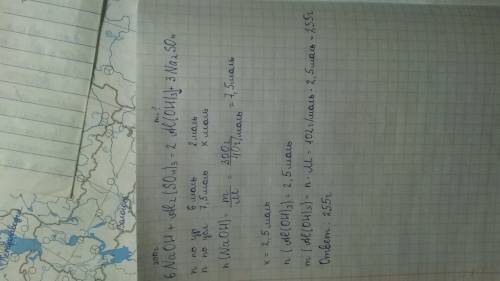 300г m-?
6 NaOH + Al₂(SO₄)₃ = 2 Al(OH)₃↓ + 3 Na₂SO₄
n по ур 6 моль 2 моль
n по усл 7,5 моль x моль
n(NaOH) = m/M = 300г/40г/моль = 7,5 моль
x = 2,5 моль
n (Al(OH)₃) = 2,5 моль
m (Al(OH)₃) = n · M = 102г/моль · 2,5 моль = 255г
Ответ: 255г